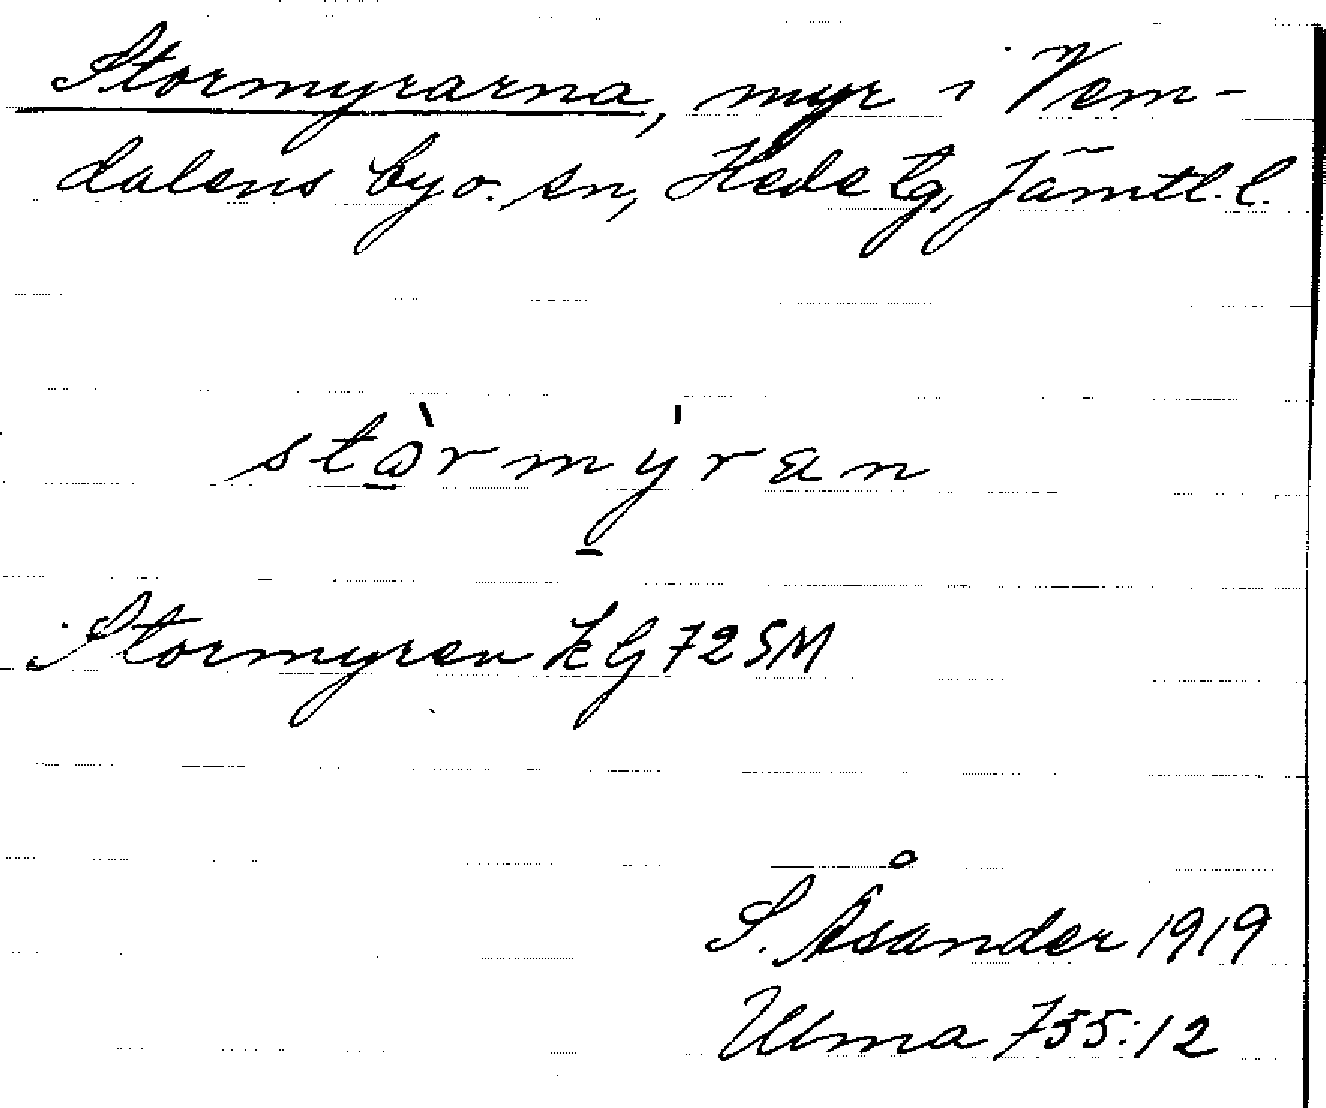 Stormyrarna, myr i Vem-
dalens by o. sn, Hede tg, Jämtl. l.
stòrmýran
Stormyren k G 72 SM
S. Åsander 1919
Ulma 735:12